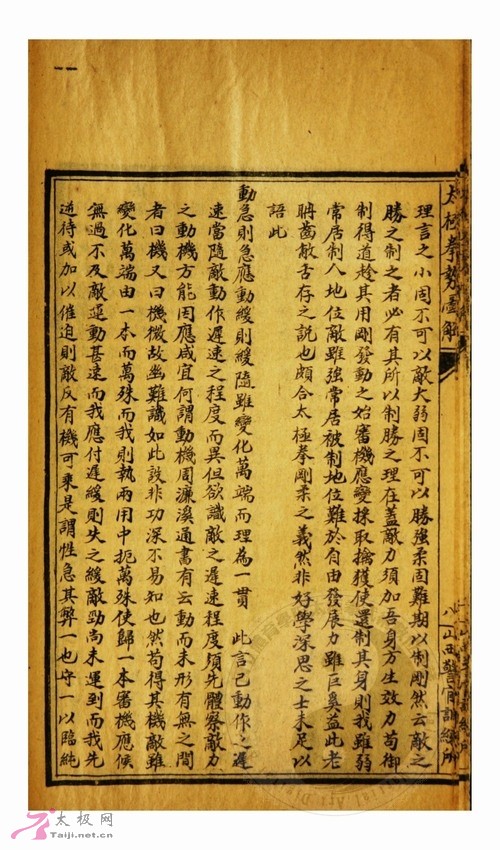 太極拳勢圖解
理言之小固不可以敵大弱固不可以勝強柔固難期以制剛然云敵之
勝之制之者必有其所以制勝之理在蓋敵力須加吾身方生效力苟御
制得道趁其用剛發動之始審機應變採取擒獲使還制其身則我雖弱
常居制人地位敵雖強常居被制地位難於自由發展力雖巨奚益此老
聃齒敝舌存之說也頗合太極拳剛柔之義然非好學深思之士未足以
語此
動急則急應動緩則緩隨雖變化萬端而理為一貫 此言己動作之遲
速當隨敵動作遲速之程度而異但欲識敵之遲速程度須先體察敵力
之動機方能因應咸宜何謂動機周濂溪通書有云動而未形有無之間
者曰機又曰機微故幽雖識如此設非功深不易知也然苟得其機敵雖
變化萬端由一本而萬殊而我則執兩用中扼萬殊使歸一本審機應候
無過不及敵運動甚速而我應付遲緩則失之緩敵勁尚未運到而我先
逆待或加以催迫則敵反有機可乘是謂性急其弊一也守一以臨純
山西警官訓練所
太极网
Taiji.net.cn